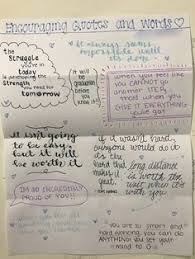 Encouraging Quotes and Words
It always seems
impossible until
it's done.
the
Struggle
you're in
today
is developing the
Strength
you need for
tomorrow
it will be
graduation
before
you know it.
when you feel like
you CANNOT go
another STEP,
treat when you
GIVE it EVERYTHING
you've got
It isn't going
to be easy,
but it will
be worth it
if it wasn't hard,
everyone would do it
it's the
hard that
makes it
great.
long distance
is worth the
wait when it's
with you
I'm SO INCREDIBLY
PROUD OF YOU!!
you are so smart and
hard working, you can do
ANYTHING you set your
mind to